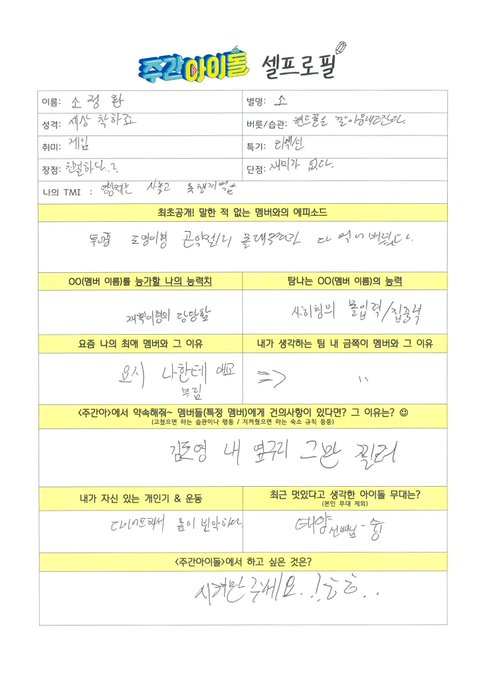 주간아이돌 셀프로필
이름: 소정환 별명: 소
성격: 세상 착하죠 버릇/습관: 핸드폰을
취미: 게임 특기: 리액션
장점: 친절하닌..? 단점: 재미가 없다.
나의 TMI :
최초공개! 말한 적 없는 멤버와의 에피소드
도영이형 곤약젤리 몰래 다 먹어버렸다.
OO(멤버 이름)를 능가할 나의 능력치 탐나는 OO(멤버 이름)의 능력
재혁이형의 당당함 사히형의 몰입력/집중력
요즘 나의 최애 멤버와 그 이유 내가 생각하는 팀 내 금쪽이 멤버와 그 이유
요시 나한테 애교 부림 => "
<주간아>에서 약속해줘~ 멤버들(특정 멤버)에게 건의사항이 있다면? 그 이유는? ☺
(고쳤으면 하는 습관이나 행동 / 지켜줬으면 하는 숙소 규칙 등등)
김도영 내 옆구리 그만 찔러
내가 자신 있는 개인기 & 운동 최근 멋있다고 생각한 아이돌 무대는?
(본인 무대 제외)
몸이 빈약하다 태양 선배님 - 슝
<주간아이돌>에서 하고 싶은 것은?
시켜만 주세요..!ㅎㅎ..